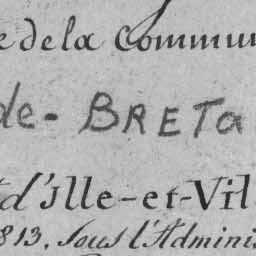 e de la Commun
de - BRETa
d'Ille-et-Vil
813. Sous l'Adminis